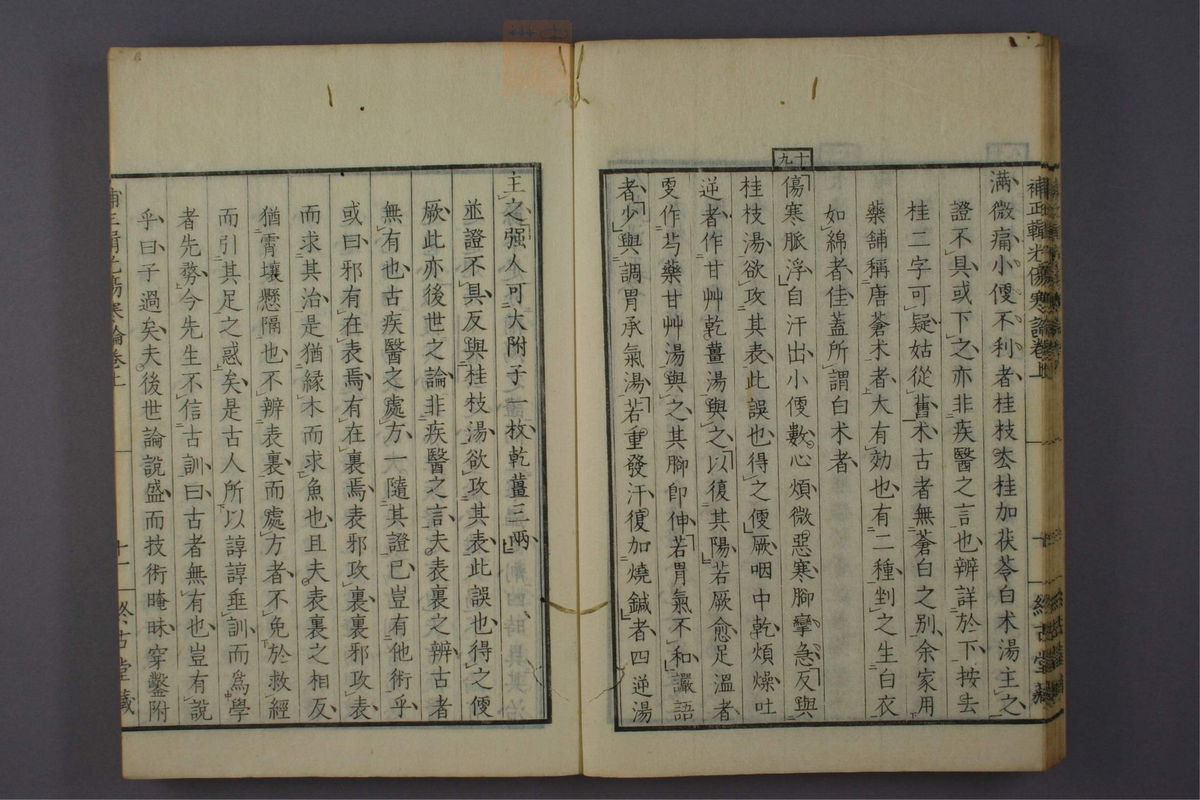 補正輯光傷寒論卷上
滿微痛小便不利者桂枝去桂加茯苓白朮湯主之
證不具或下之亦非疾醫之言也辨詳於下按去
桂二字可疑姑從舊朮古者無蒼白之别余家用
藥舖稱唐蒼朮者大有効也有二種剉之生白衣
如綿者佳蓋所謂白朮者
十九
傷寒脈浮自汗出小便數心煩微惡寒脚攣急反與
桂枝湯欲攻其表此誤也得之便厥咽中乾煩燥吐
逆者作甘艸乾薑湯與之以復其陽若厥愈足溫者
更作芍藥甘艸湯與之其脚卽伸若胃氣不和讝語
者少與調胃承氣湯若重發汗復加燒鍼者四逆湯
主之强人可大附子一枚乾薑三兩
並證不具反與桂枝湯欲攻其表此誤也得之便
厥此亦後世之論非疾醫之言夫表裏之辨古者
無有也古疾醫之處方一隨其證已豈有他術乎
或曰邪有在表焉有在裏焉表邪攻裏裏邪攻表
而求其治是猶緣木而求魚也且夫表裏之相反
猶霄壤懸隔也不辨表裏而處方者不免於救經
而引其足之惑矣是古人所以諄諄垂訓而爲學
者先務今先生不信古訓曰古者無有也豈有說
乎曰子過矣夫後世論說盛而技術晻昧穿鑿附
十一
終古堂藏